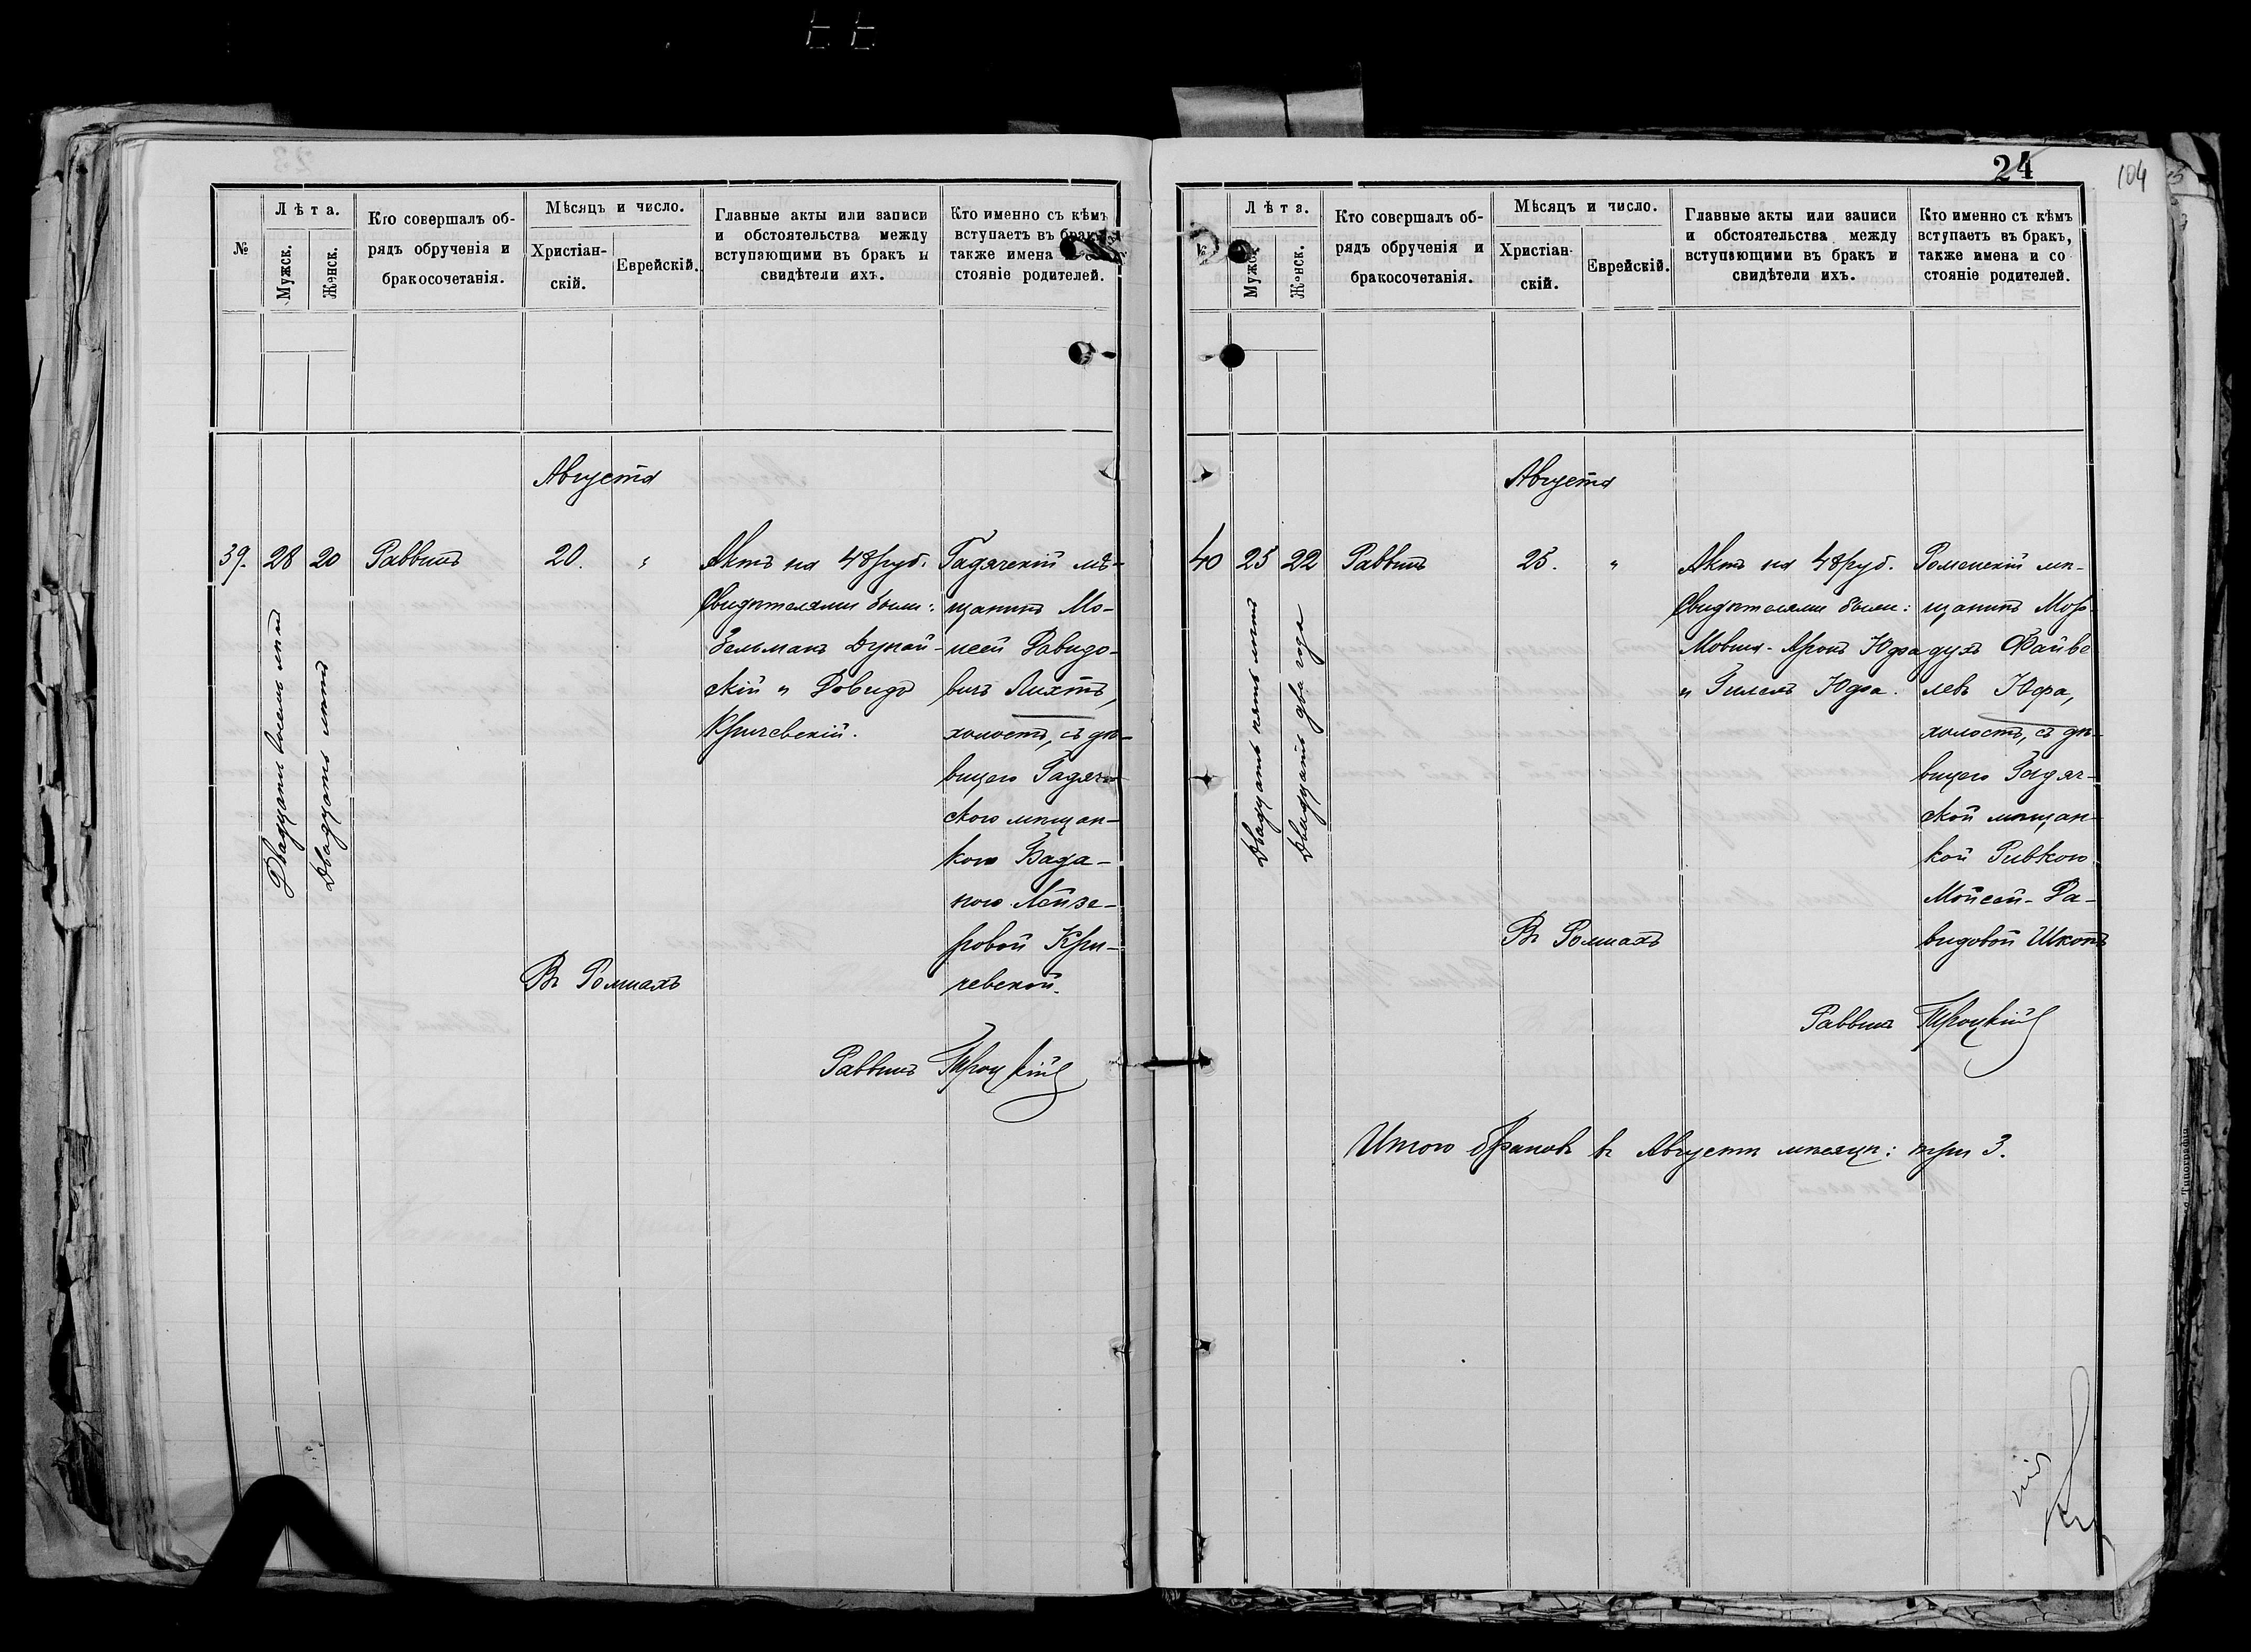 24
104
№
Лѣта.
Мужск.
Женск.
Кто совершалъ об-
рядъ обрученія и
бракосочетанія.
Мѣсяцъ и число.
Христіан-
скій.
Еврейскій.
Главные акты или записи
и обстоятельства между
вступающими въ бракъ и
свидѣтели ихъ.
Кто именно съ кѣмъ
вступаетъ въ бракъ,
также имена
стояніе родителей.
Августа
39. 28 20 Раввинъ 20. "
Двадцать восемь лѣтъ
Двадцать лѣтъ
Актъ на 48 руб.
Свидѣтелями были:
Зельманъ Дунай-
скій и Довидъ
Кричевскій.
Гадячскій мѣ-
щанинъ Мо-
исей Давидо-
вичъ Лихтъ,
холостъ, съ дѣ-
вицею Гадяч-
ского мѣщан-
кою Бада-
ною Лейзе-
ровой Кри-
чевской.
Въ Ромнахъ
Раввинъ Троцкій
Лѣта.
Мужск.
Женск.
Кто совершалъ об-
рядъ обрученія и
бракосочетанія.
Мѣсяцъ и число.
Христіан-
скій.
Еврейскій.
Главные акты или записи
и обстоятельства между
вступающими въ бракъ и
свидѣтели ихъ.
Кто именно съ кѣмъ
вступаетъ въ бракъ,
также имена и со
стояніе родителей.
Августа
40 25 22 Раввинъ 25. "
Двадцать пять лѣтъ
Двадцать два года
Актъ на 48 руб.
Свидѣтелями были:
Мовша-Аронъ Юфа
и Гилель Юфа.
Роменскій мѣ-
щанинъ Мор-
духъ Файве
левъ Юфа,
холостъ, съ дѣ-
вицею Гадяч-
ской мѣщан-
кой Ривкою
Мойсей-Да-
видовой Шкопъ
Въ Ромнахъ
Раввинъ Троцкій
Итого браковъ въ Августѣ мѣсяцѣ: три 3.